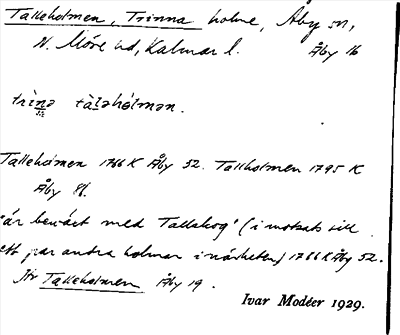 Talleholmen, Trinna holme, Åby sn,
N. Möre hd, Kalmar l. Åby 16
trìnə tàləhólmən.
Talleholmen 1766 K Åby 52. Tallholmen 1795 K
Åby 86.
"är beväxt med Tallskog" (i motsats till
ett par andra holmar i närheten) 1766 K Åby 52.
Jfr Talleholmen Åby 19.
Ivar Modéer 1929.